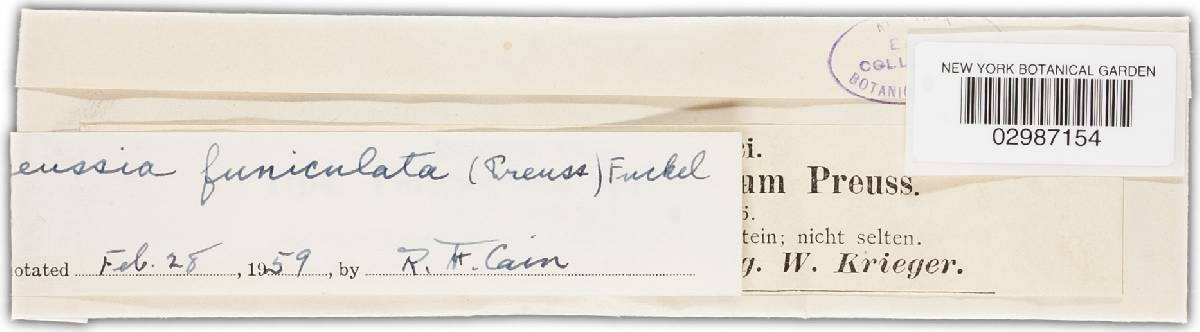 E
COLL
BOTANI
NEW YORK BOTANICAL GARDEN
02987154
eussia funiculata (Preuss) Fuckel
otated Feb. 28, 1959, by R. F. Cain
ci.
um Preuss.
5.
tein; nicht selten.
g. W. Krieger.